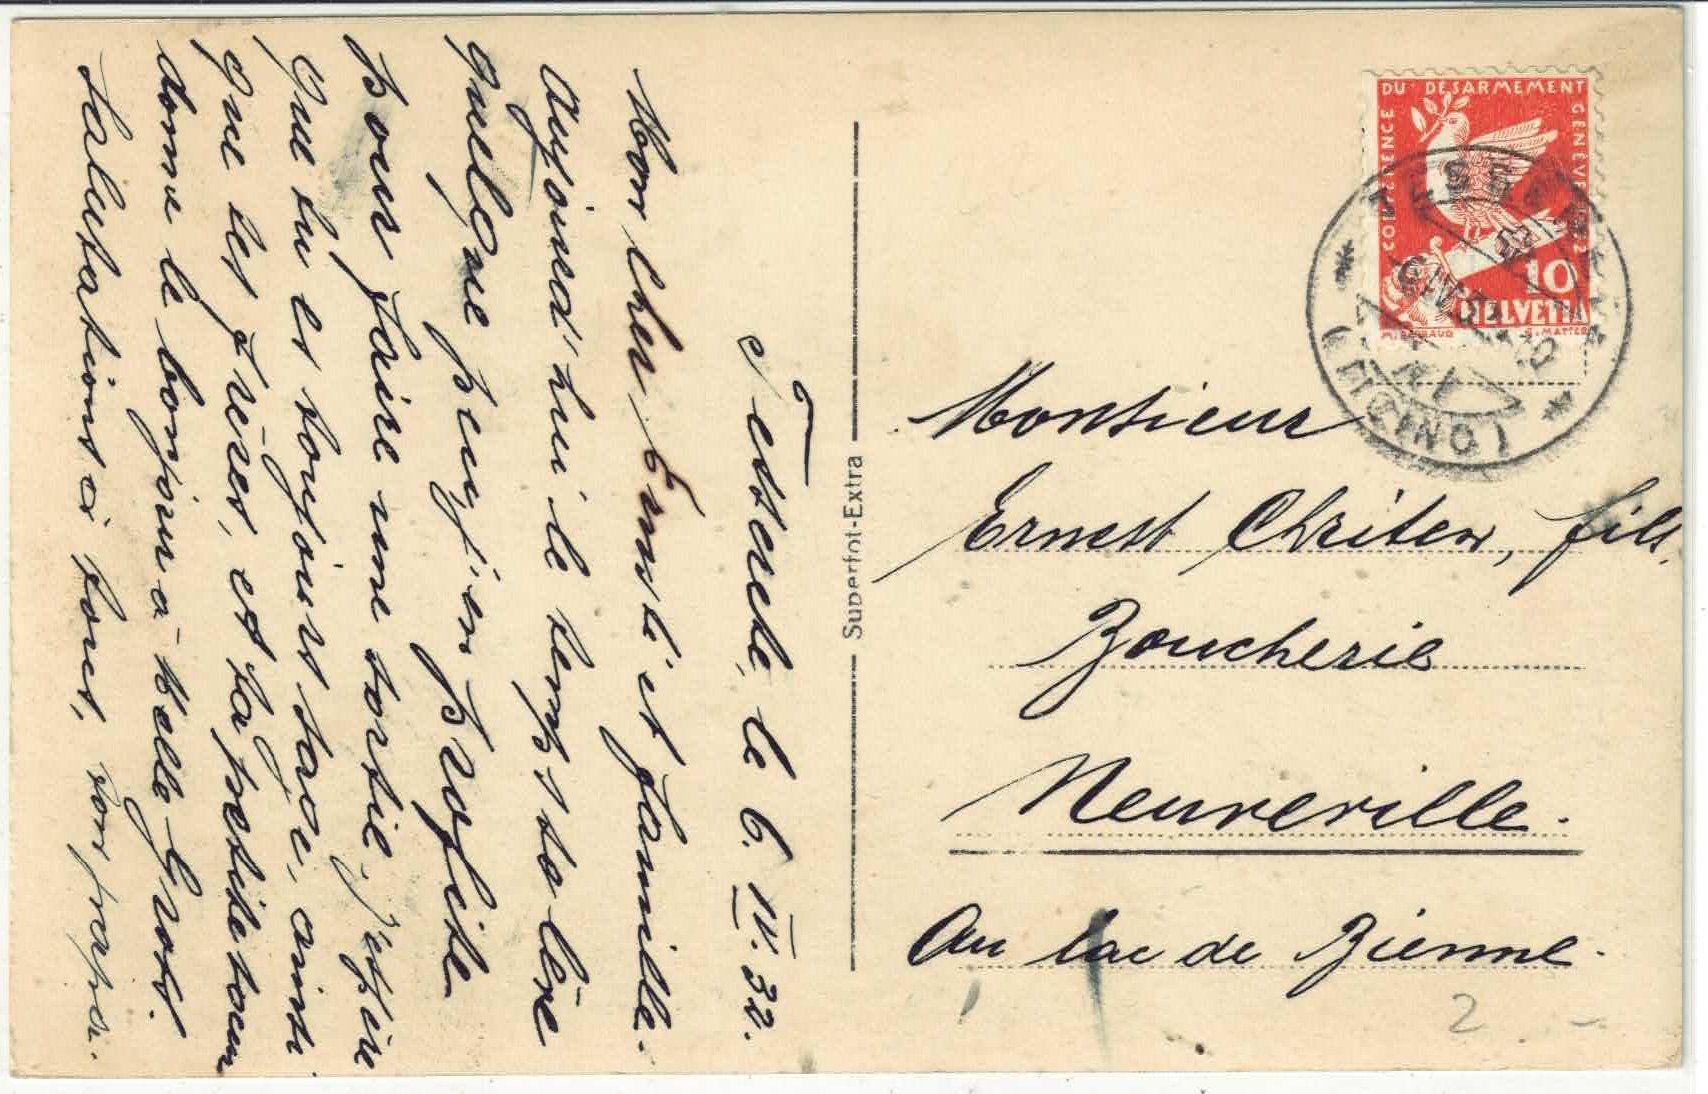 Tesserete, le 6. IV. 32.
Mon cher Ernest et famille.
Aujourd'hui le temps se lève
quelque peu, j'en profite
pour faire une sortie. J'espère
que tu es toujours sage, ainsi
que tes frères, et ta petite soeur
donne le bonjour à Belle-
Salutations à tous, ton
Superfot-Extra
CONFERENCE DU DESARMEMENT GENEVE 1932
10
HELVETIA
TESSERETE
(TICINO)
Monsieur
Ernest Christen, fils.
Boucherie
Neuveville.
Au lac de Bienne.
2